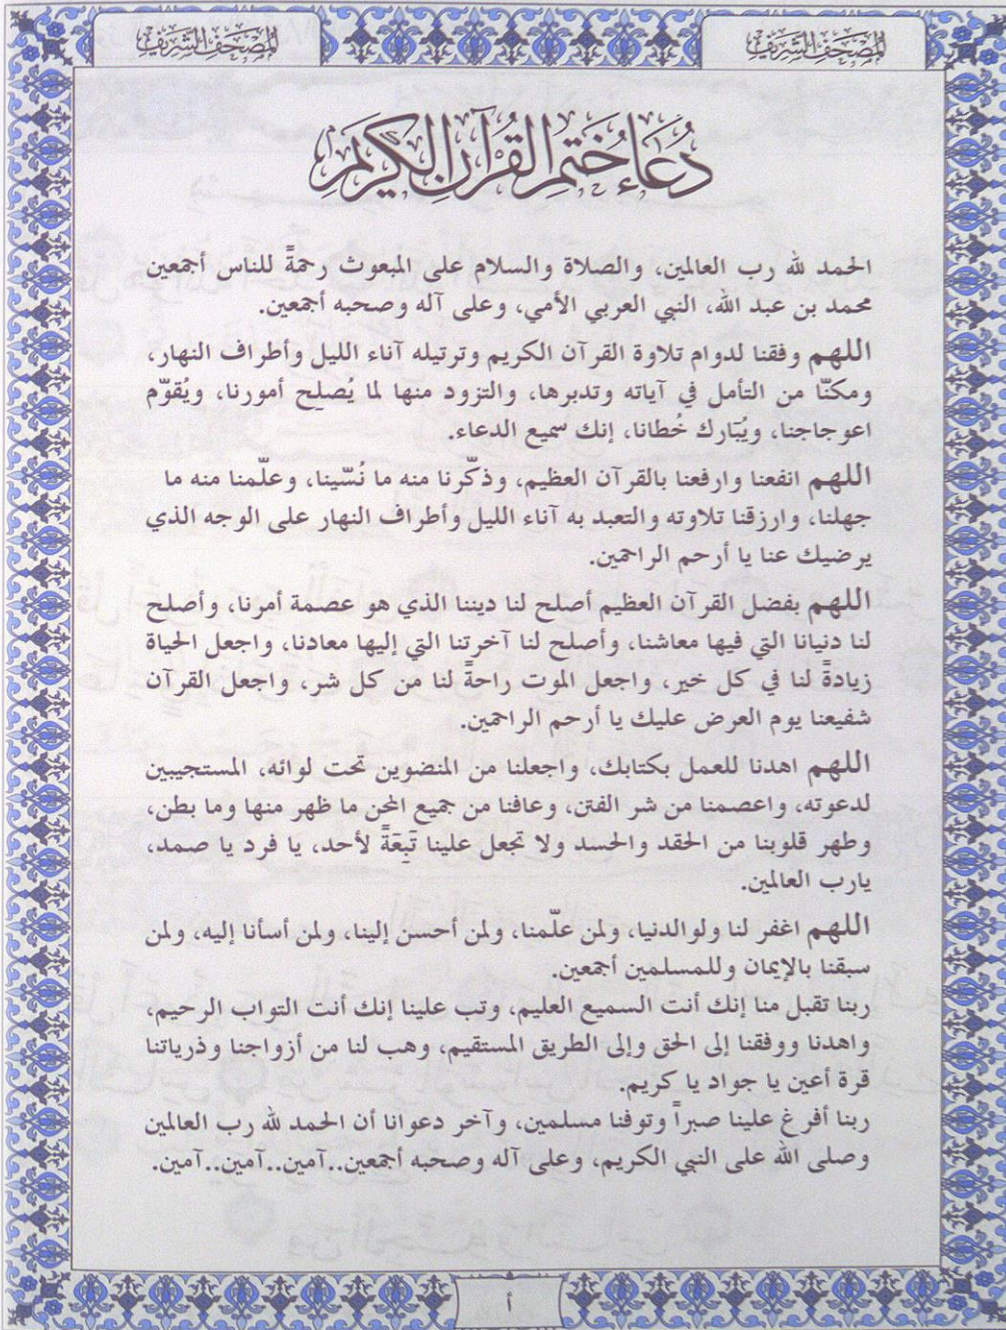 المصحف الشريف
المصحف الشريف
دُعَاءُ خَتْمِ القُرآنِ الكَرِيمِ
الحمد لله رب العالمين، والصلاة والسلام على المبعوث رحمةً للناس أجمعين
محمد بن عبد الله، النبي العربي الأمي، وعلى آله وصحبه أجمعين.
اللهم وفقنا لدوام تلاوة القرآن الكريم وترتيله آناء الليل وأطراف النهار،
ومكنّا من التأمل في آياته وتدبرها، والتزود منها لما يُصلِح أمورنا، ويُقوّم
اعوجاجنا، ويُبَارك خُطانا، إنك سميع الدعاء.
اللهم انفعنا وارفعنا بالقرآن العظيم، وذكّرنا منه ما نُسّينا، وعلّمنا منه ما
جهلنا، وارزقنا تلاوته والتعبد به آناء الليل وأطراف النهار على الوجه الذي
يرضيك عنا يا أرحم الراحمين.
اللهم بفضل القرآن العظيم أصلح لنا ديننا الذي هو عصمة أمرنا، وأصلح
لنا دنيانا التي فيها معاشنا، وأصلح لنا آخرتنا التي إليها معادنا، واجعل الحياة
زيادةً لنا في كل خير، واجعل الموت راحةً لنا من كل شر، واجعل القرآن
شفيعنا يوم العرض عليك يا أرحم الراحمين.
اللهم اهدنا للعمل بكتابك، واجعلنا من المنضوين تحت لوائه، المستجيبين
لدعوته، واعصمنا من شر الفتن، وعافنا من جميع المحن ما ظهر منها وما بطن،
وطهر قلوبنا من الحقد والحسد ولا تجعل علينا تَبِعَةً لأحد، يا فرد يا صمد،
يارب العالمين.
اللهم اغفر لنا ولوالدنيا، ولمن علّمنا، ولمن أحسن إلينا، ولمن أسأنا إليه، ولمن
سبقنا بالإيمان وللمسلمين أجمعين.
ربنا تقبل منا إنك أنت السميع العليم، وتب علينا إنك أنت التواب الرحيم،
واهدنا ووفقنا إلى الحق وإلى الطريق المستقيم، وهب لنا من أزواجنا وذرياتنا
قرة أعين يا جواد يا كريم.
ربنا أفرغ علينا صبراً وتوفنا مسلمين، وآخر دعوانا أن الحمد لله رب العالمين
وصلى الله على النبي الكريم، وعلى آله وصحبه أجمعين..آمين..آمين..آمين.
أ